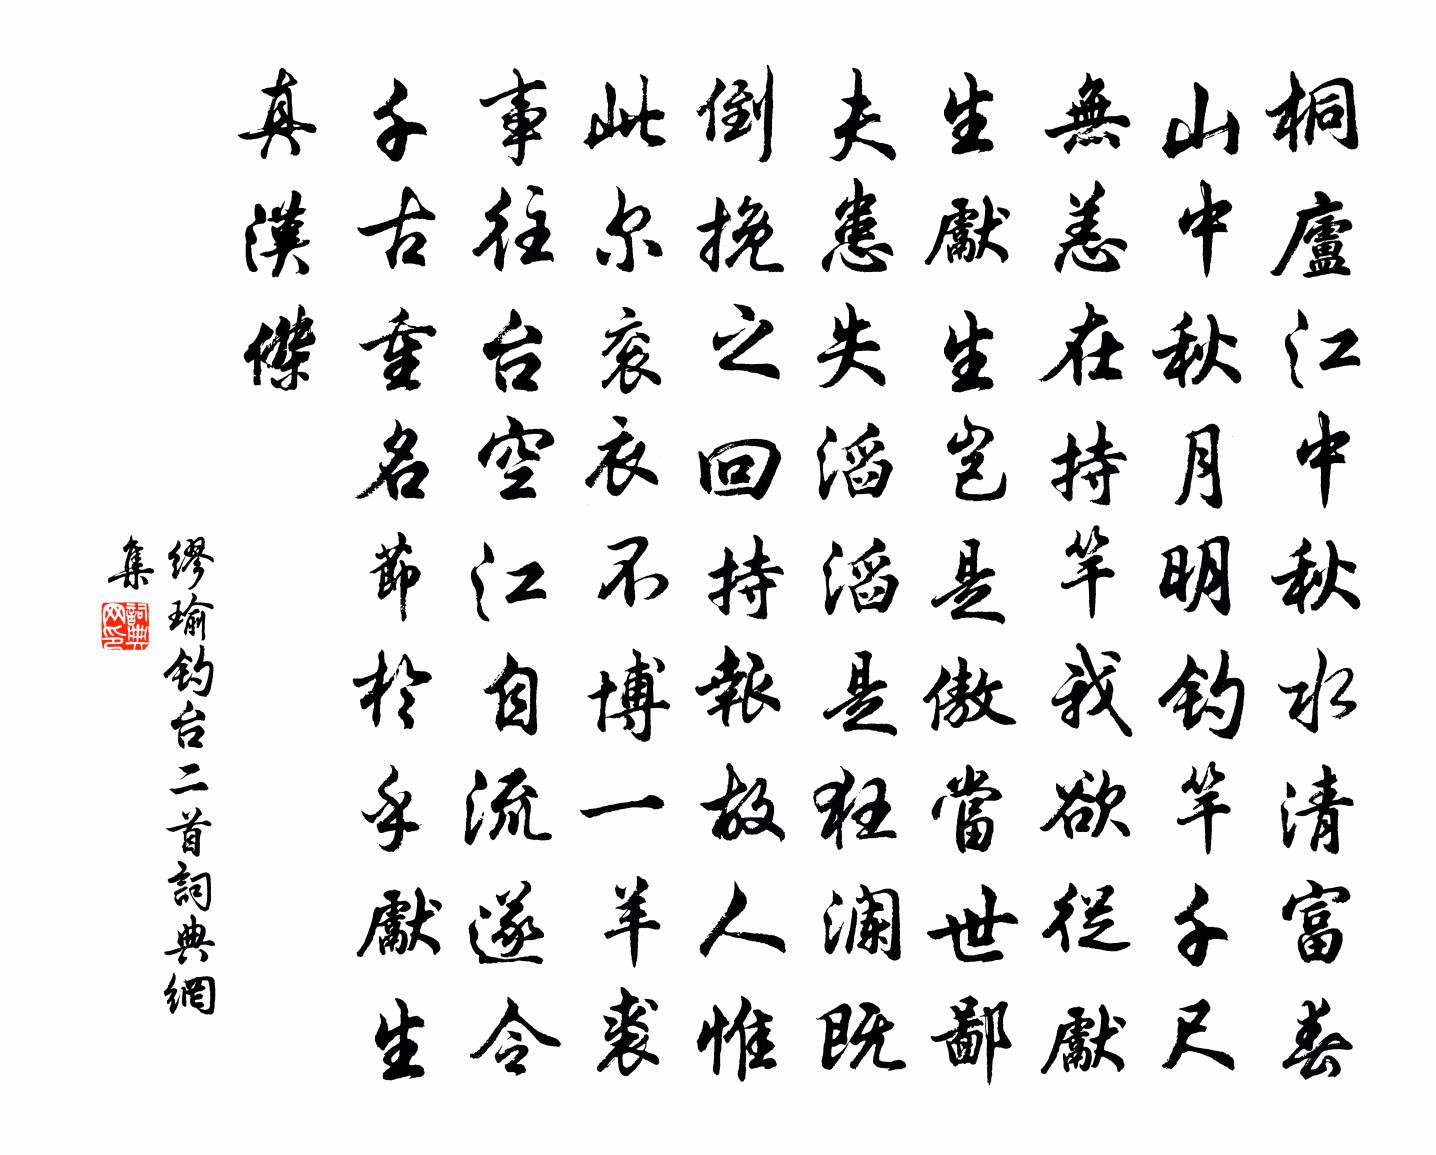 桐廬江中秋水清富春
山中秋月明釣竿千尺
無恙在持竿我欲從獻
生獻生豈是傲當世鄙
夫患失滔滔是狂瀾既
倒挽之回持報故人惟
此尔衮衣不博一羊裘
事往台空江自流遂令
千古重名節於乎獻生
真漢傑
繆瑜釣台二首詞典網
集
詞典网印